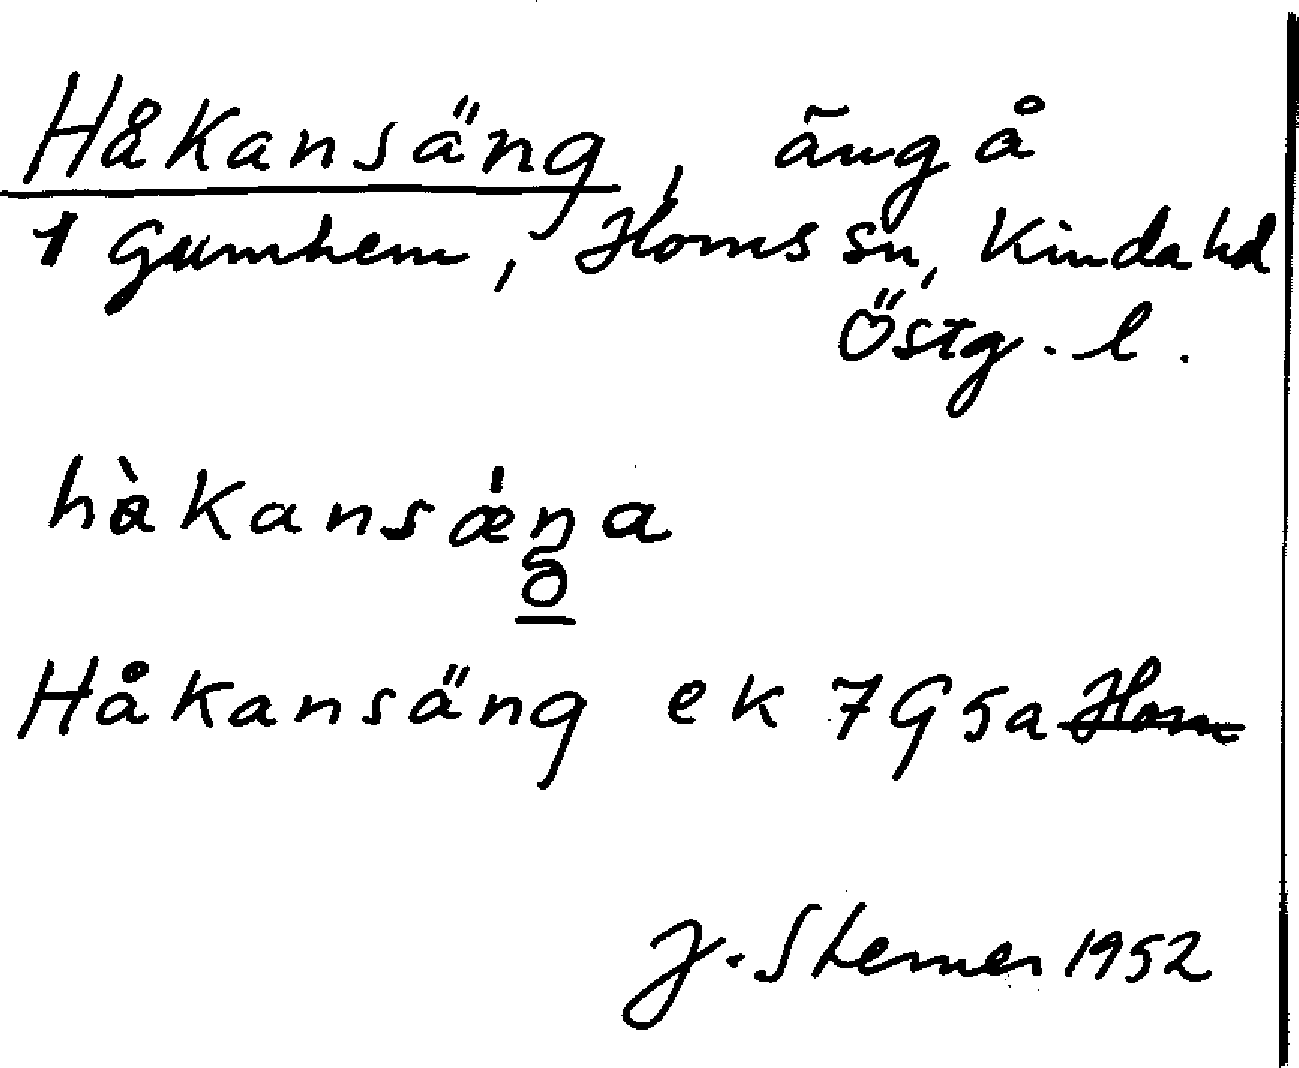 Håkansäng, äng å
1 Gumhem, Horns sn, Kinda hd
Östg. l.
hàkansǽŋa
Håkansäng ek 7G5a Horn
J. Sterner 1952